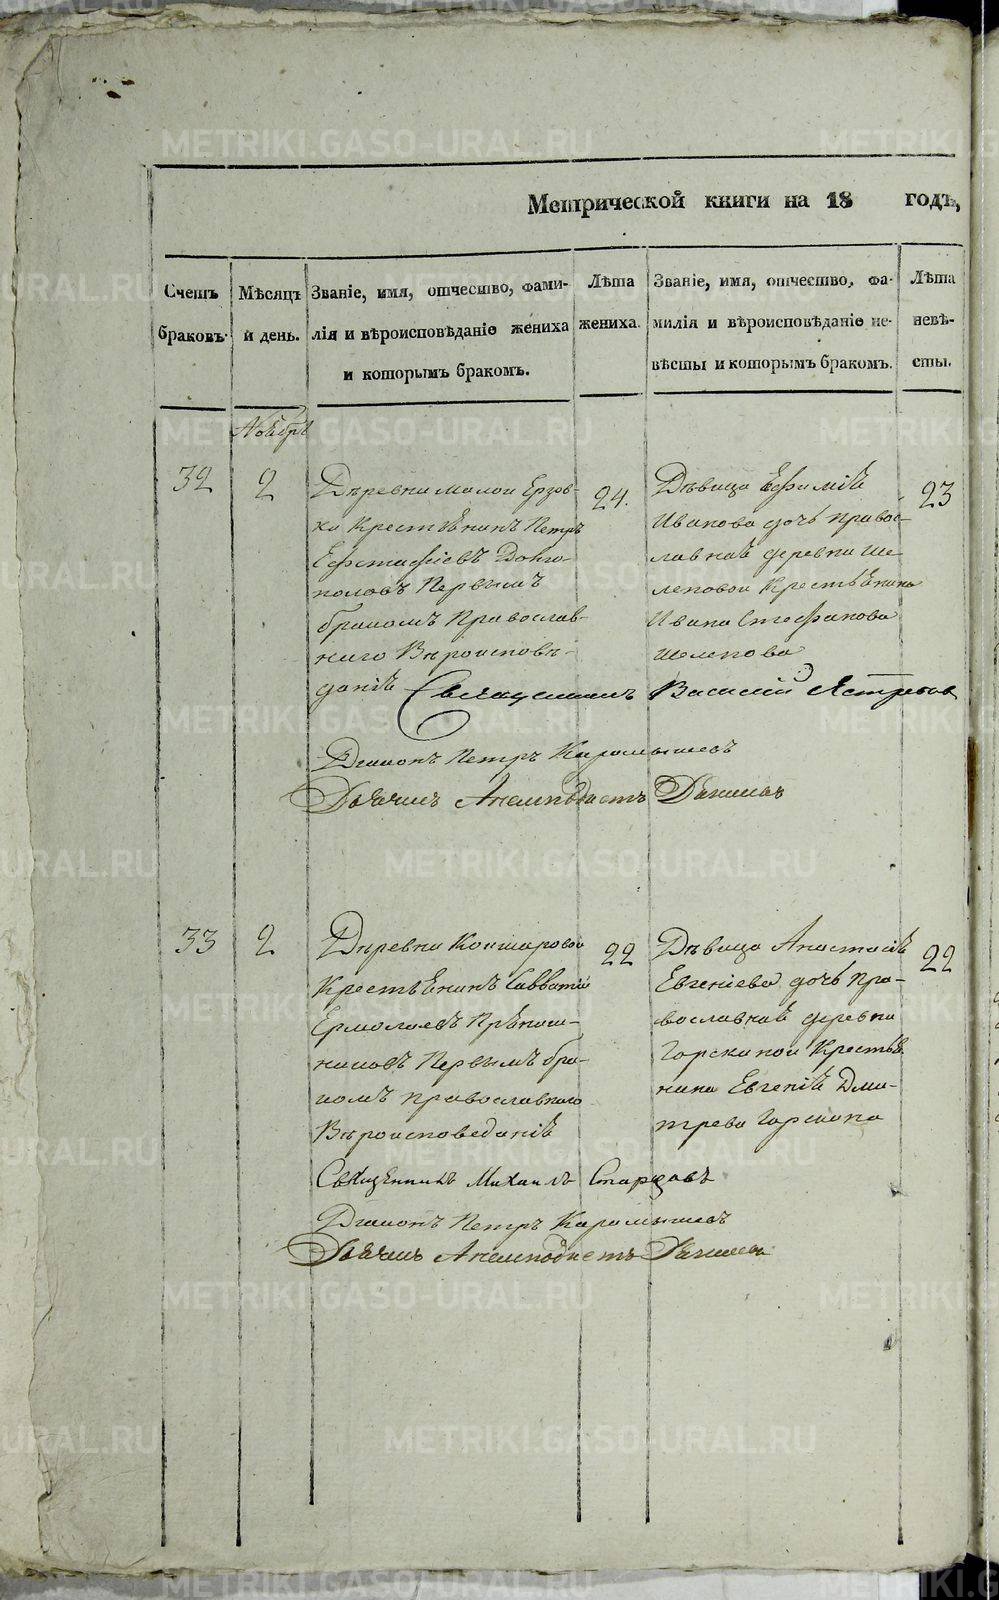 Метрической книги на 18 годъ,
Счетъ браковъ.
Мѣсяцъ и день.
Званіе, имя, отчество, фами-
лія и вѣроисповѣданіе жениха
и которымъ бракомъ.
Лѣта
жениха.
Званіе, имя, отчество, фа-
милія и вѣроисповѣданіе не-
вѣсты и которымъ бракомъ.
Лѣта
невѣ-
сты.
Ноябрь
32
2
Деревни малой Ерзов-
ки Крестьянинъ Петръ
Ефстафіевъ Долго-
половъ Первымъ
бракомъ Православ-
наго Вѣроисповѣ-
данія
24.
Дѣвица Ефимія
Иванова дочь право-
славная деревни Ше-
леповой Крестьянина
Ивана Стефанова
Шелепова
23
Священникъ Василій Ястребов
Діаконъ Петръ Карамышевъ
Дьячикъ Анемподистъ
33
2
Деревни Кошаровой
Крестьянинъ Савватій
Ермолаевъ
Первымъ бра-
комъ православнаго
Вѣроисповеданія
22
Дѣвица Анастасія
Евгеніева дочь Пра-
вославная деревни
Горскиной Крестья-
нина Евгенія Дми-
трева Горскина
22
Священникъ Михаилъ Старцовъ
Діаконъ Петръ Карамышевъ
Дьячикъ Анемподистъ
METRIKI.GASO-URAL.RU